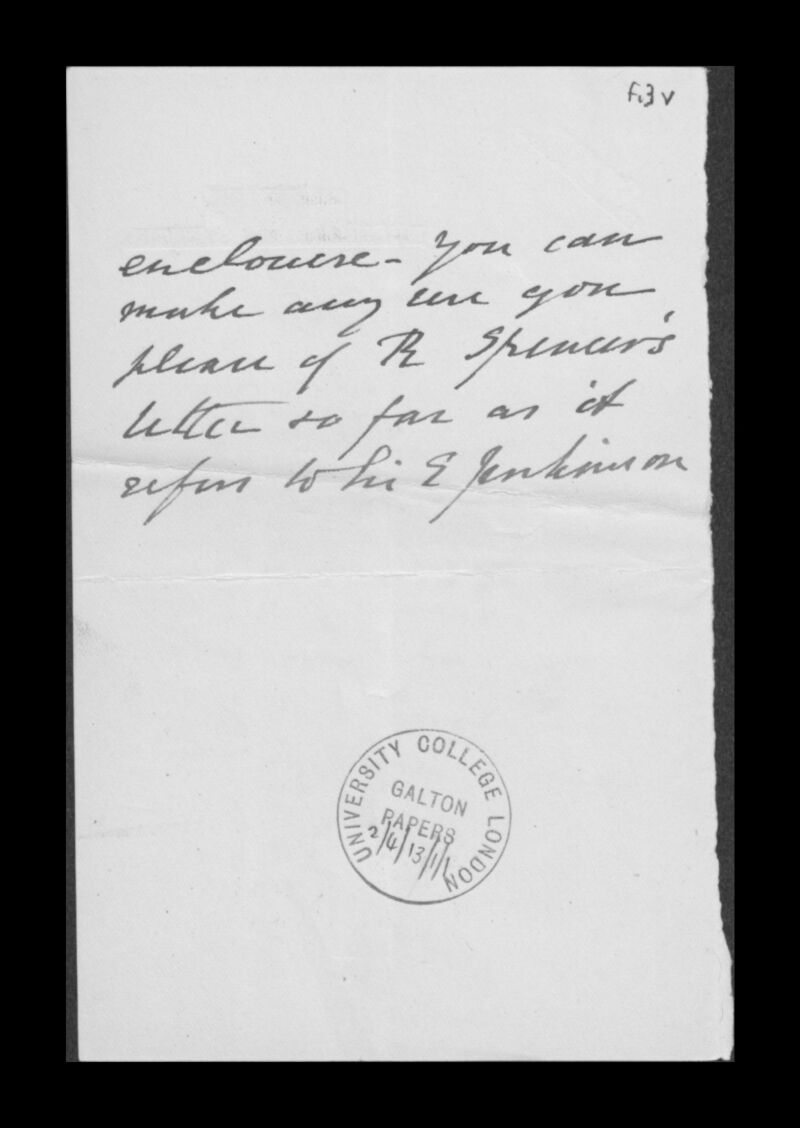 f.3 v
enclosure - You can
make any use you
please of R Spencer's
letter so far as it
refers to Sir E Jenkinson
UNIVERSITY COLLEGE LONDON
GALTON
PAPERS
2/4/13/1/1